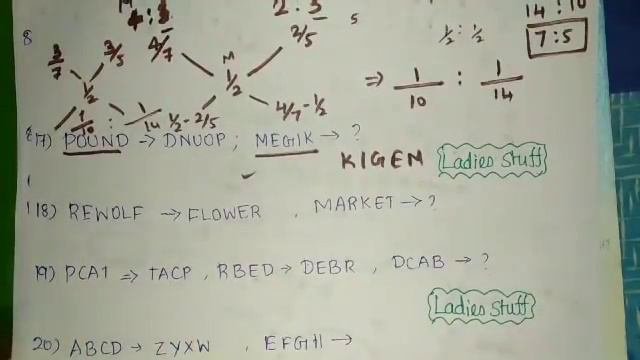 4 : 3 2 : 5 5 14 : 10
8 3/7 3/5 4/7 M 2/5 1/2 : 1/2 7 : 5
1/2 1/2 ⇒ 1/10 : 1/14
1/10 : 1/14 1/2 - 2/5 4/7 - 1/2
17) POUND → DNUOP ; MEGIK → ?
KIGEM Ladies Stuff
18) REWOLF → FLOWER , MARKET → ?
19) PCAT ⇒ TACP , RBED → DEBR , DCAB → ?
Ladies Stuff
20) ABCD → ZYXW , EFGH →